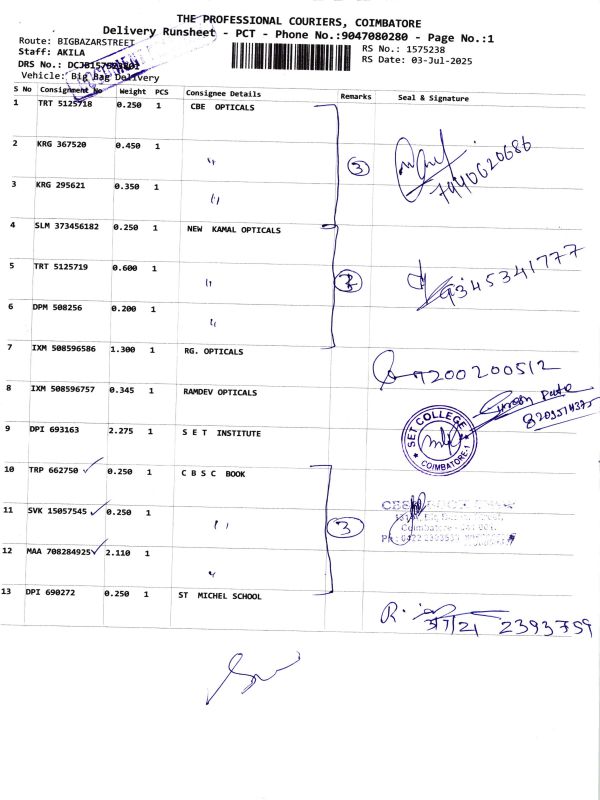 THE PROFESSIONAL COURIERS, COIMBATORE
Delivery Runsheet - PCT - Phone No.:9047080280 - Page No.:1
Route: BIGBAZARSTREET
RS No.: 1575238
Staff: AKILA
RS Date: 03-Jul-2025
DRS No.:
Vehicle: Big Bag Delivery
S No Consignment No Weight PCS Consignee Details Remarks Seal & Signature
1 TRT 5125718 0.250 1 CBE OPTICALS
2 KRG 367520 0.450 1 〃
3 7940620686
3 KRG 295621 0.350 1 〃
4 SLM 373456182 0.250 1 NEW KAMAL OPTICALS
5 TRT 5125719 0.600 1 〃
9345341777
6 DPM 508256 0.200 1 〃
7 IXM 508596586 1.300 1 RG. OPTICALS
7200200512
8 IXM 508596757 0.345 1 RAMDEV OPTICALS
9 DPI 693163 2.275 1 S E T INSTITUTE
SET COLLEGE
COIMBATORE-1
10 TRP 662750 ✓ 0.250 1 C B S C BOOK
11 SVK 15057545 ✓ 0.250 1 〃
3
Coimbatore
12 MAA 708284925 ✓ 2.110 1 〃
13 DPI 690272 0.250 1 ST MICHEL SCHOOL
R.
3/7/21 2393759